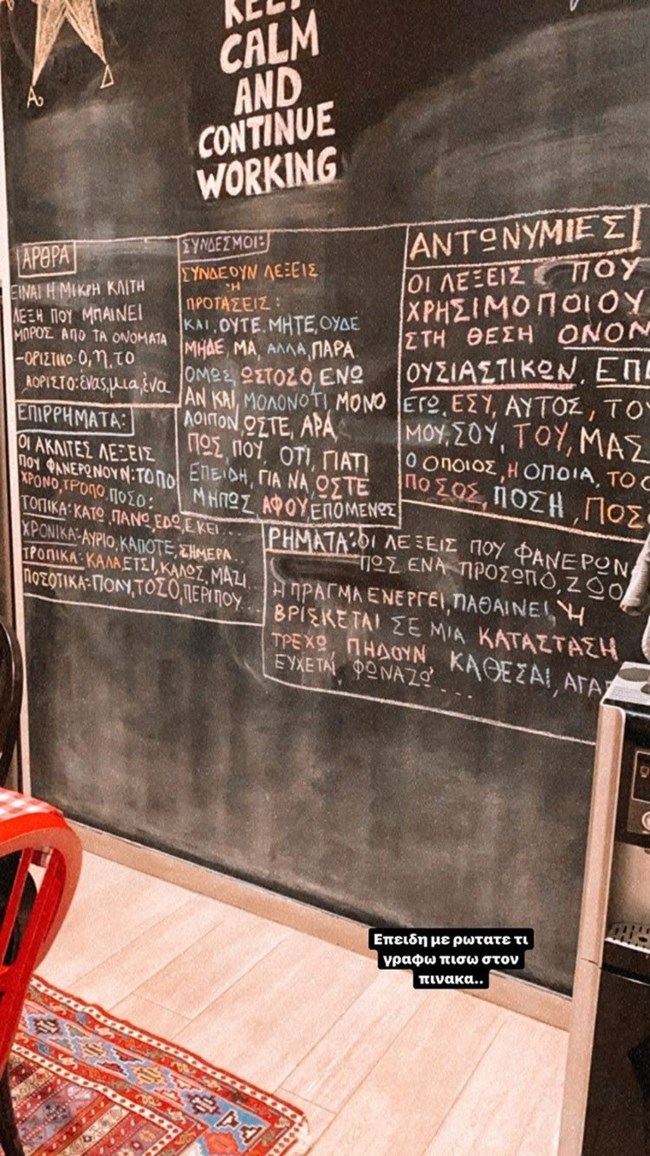 KEEP
CALM
AND
CONTINUE
WORKING
ΑΡΘΡΑ
ΕΙΝΑΙ Η ΜΙΚΡΗ ΚΛΙΤΗ
ΛΕΞΗ ΠΟΥ ΜΠΑΙΝΕΙ
ΜΠΡΟΣ ΑΠΟ ΤΑ ΟΝΟΜΑΤΑ
-ΟΡΙΣΤΙΚΟ: Ο, η, το
ΑΟΡΙΣΤΟ: ένας, μια, ένα
ΕΠΙΡΡΗΜΑΤΑ:
ΟΙ ΑΚΛΙΤΕΣ ΛΕΞΕΙΣ
ΠΟΥ ΦΑΝΕΡΩΝΟΥΝ: ΤΟΠΟ
ΧΡΟΝΟ, ΤΡΟΠΟ, ΠΟΣΟ:
ΤΟΠΙΚΑ: ΚΑΤΩ, ΠΑΝΩ, ΕΔΩ, ΕΚΕΙ...
ΧΡΟΝΙΚΑ: ΑΥΡΙΟ, ΚΑΠΟΤΕ, ΣΗΜΕΡΑ...
ΤΡΟΠΙΚΑ: ΚΑΛΑ ΕΤΣΙ, ΚΑΛΩΣ, ΜΑΖΙ..
ΠΟΣΟΤΙΚΑ: ΠΟΛΥ, ΤΟΣΟ, ΠΕΡΙΠΟΥ...
ΣΥΝΔΕΣΜΟΙ:
ΣΥΝΔΕΟΥΝ ΛΕΞΕΙΣ
Ή
ΠΡΟΤΑΣΕΙΣ:
ΚΑΙ, ΟΥΤΕ, ΜΗΤΕ, ΟΥΔΕ
ΜΗΔΕ, ΜΑ, ΑΛΛΑ, ΠΑΡΑ
ΟΜΩΣ, ΩΣΤΟΣΟ, ΕΝΩ
ΑΝ ΚΑΙ, ΜΟΛΟΝΟΤΙ, ΜΟΝΟ
ΛΟΙΠΟΝ, ΩΣΤΕ, ΑΡΑ,
ΠΩΣ, ΠΟΥ, ΟΤΙ, ΓΙΑΤΙ
ΕΠΕΙΔΗ, ΓΙΑ ΝΑ, ΩΣΤΕ
ΜΗΠΩΣ ΑΦΟΥ, ΕΠΟΜΕΝΩΣ
ΑΝΤΩΝΥΜΙΕΣ
ΟΙ ΛΕΞΕΙΣ ΠΟΥ
ΧΡΗΣΙΜΟΠΟΙΟΥ
ΣΤΗ ΘΕΣΗ ΟΝΟΜ
ΟΥΣΙΑΣΤΙΚΩΝ, ΕΠΙ
ΕΓΩ, ΕΣΥ, ΑΥΤΟΣ, ΤΟΥ
ΜΟΥ, ΣΟΥ, ΤΟΥ, ΜΑΣ
Ο ΟΠΟΙΟΣ, Η ΟΠΟΙΑ, ΤΟ Ο
ΠΟΣΟΣ, ΠΟΣΗ, ΠΟΣ
ΡΗΜΑΤΑ: ΟΙ ΛΕΞΕΙΣ ΠΟΥ ΦΑΝΕΡΩΝ
ΠΩΣ ΕΝΑ ΠΡΟΣΩΠΟ, ΖΩΟ
Ή ΠΡΑΓΜΑ ΕΝΕΡΓΕΙ, ΠΑΘΑΙΝΕΙ, Ή
ΒΡΙΣΚΕΤΑΙ ΣΕ ΜΙΑ ΚΑΤΑΣΤΑΣΗ
ΤΡΕΧΩ, ΠΗΔΟΥΝ, ΚΑΘΕΣΑΙ, ΑΓΑΠ
ΕΥΧΕΤΑΙ, ΦΩΝΑΖΩ...
Επειδη με ρωτατε τι
γραφω πισω στον
πινακα..